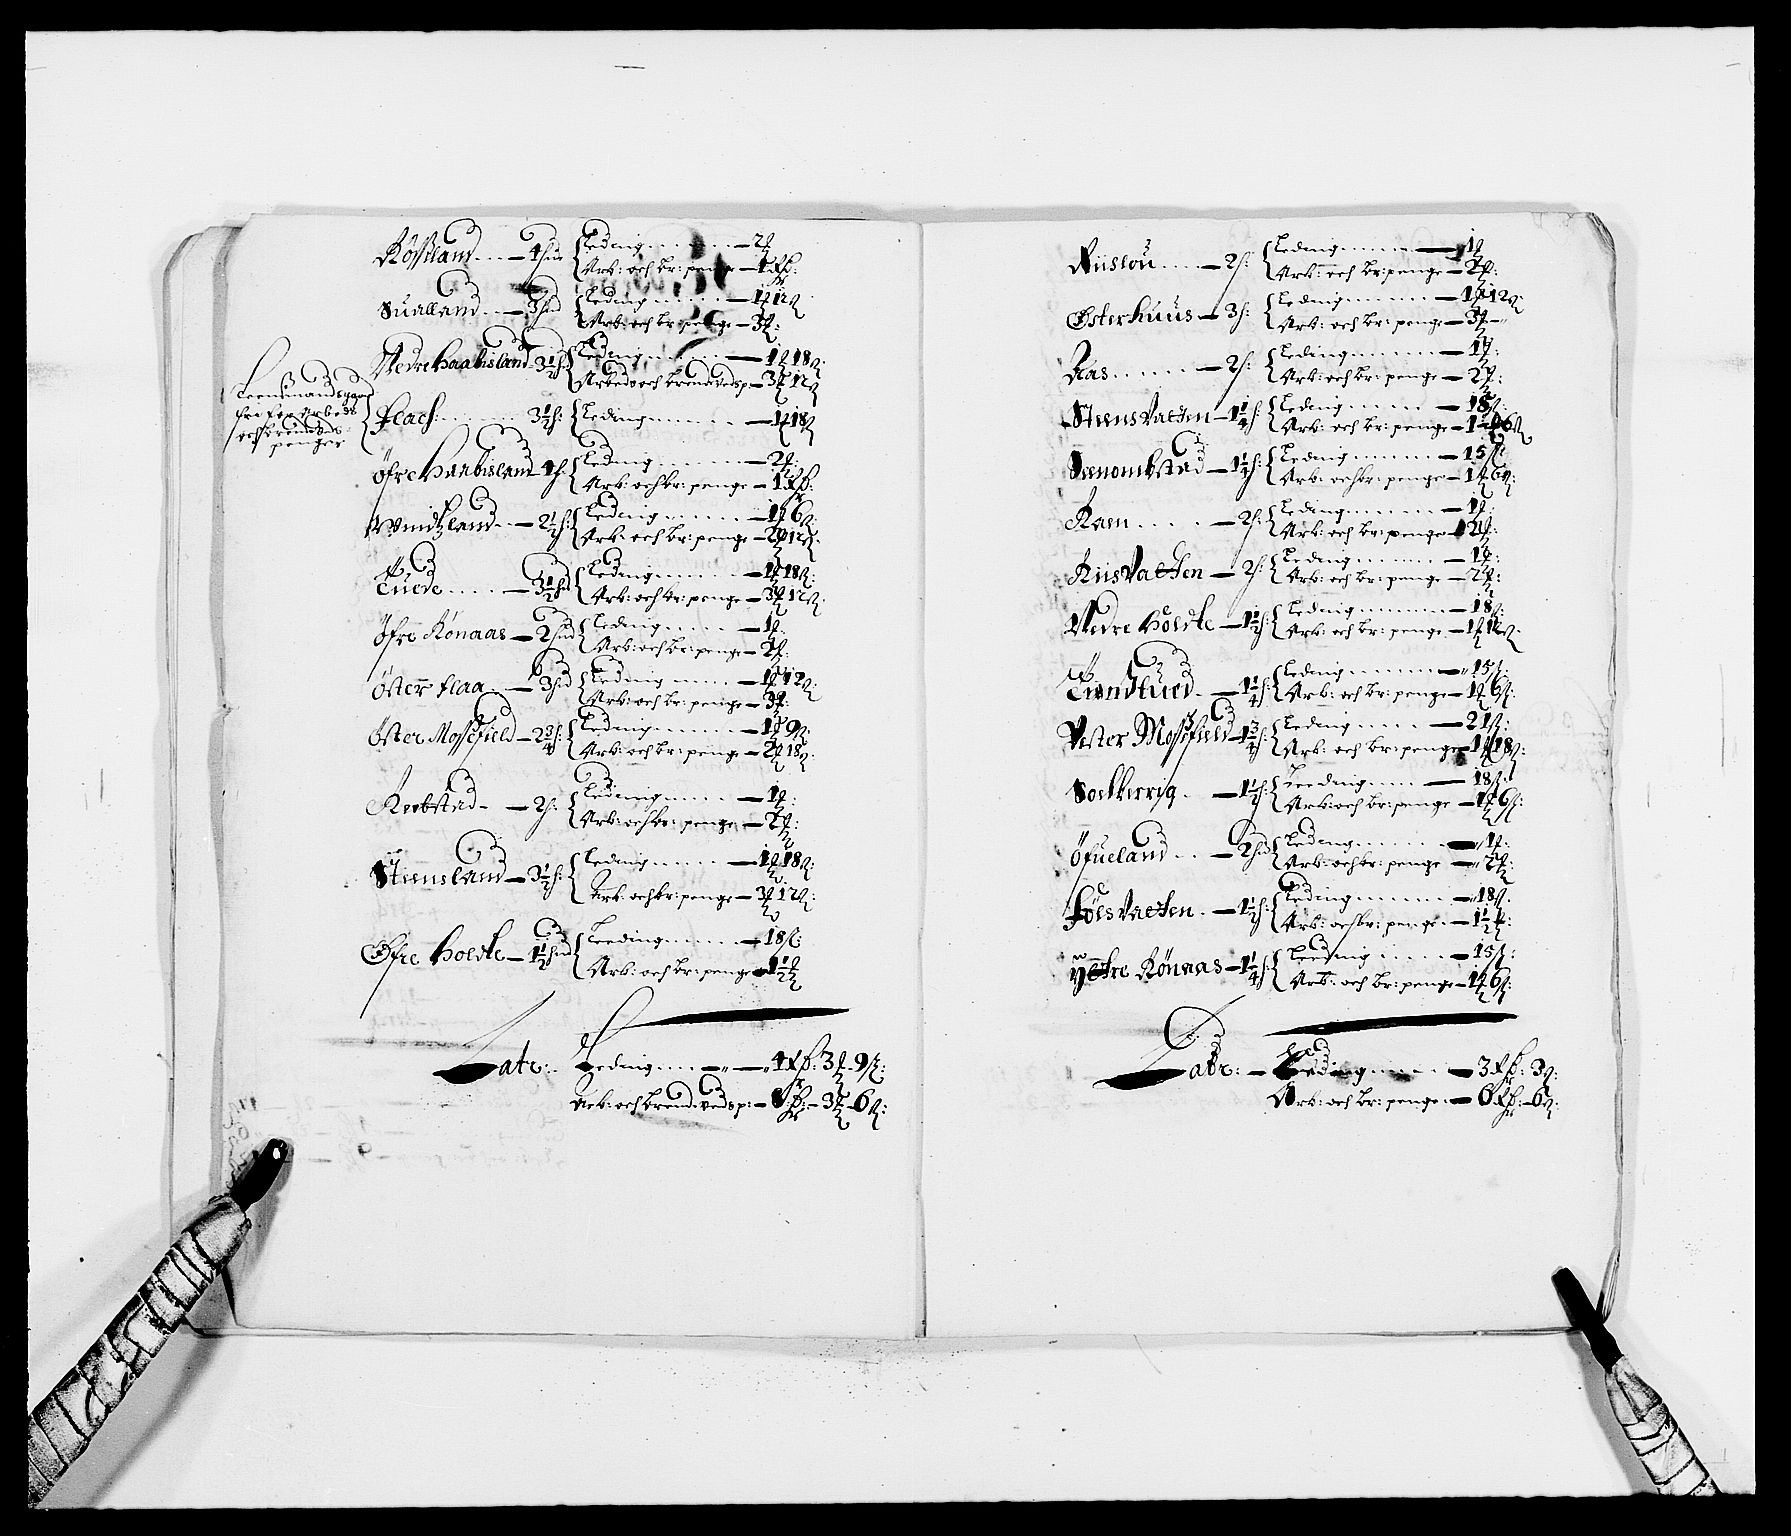 Rösland .... — 4 hud { Leding ........ — 2 ꝑ
Arb: och br: penge — 1 Rß:
Sualland ... — 3 hud { Leding ........ — 1 ꝑ 12 ß
Arb: och br: penge — 3 ꝑ:
Nedre Haabisland 3½ h: { Leding ........ — 1 ꝑ 18 ß:
Arbeds och brendevedsp: — 3 ꝑ 12 ß
Leensmands gaar
fri for Arbeds
och brendeds
penger
Flach: ........ 3½ h: { Leding ........ — 1 ꝑ 18 ß
Öfre Haabisland 4 h: { Leding ........ — 2 ꝑ:
Arb: och br: penge — 1 Rß:
Windtzland ... — 2½ h: { Leding ........ — 1 ꝑ 6 ß:
Arb: och br: penge — 2 ꝑ 12 ß:
Tuede ..... — 3½ hd { Leding ....... — 1 ꝑ 18 ß:
Arb: och br: penge — 3 ꝑ 12 ß:
Öfre Rönaas — 2 hud { Leding ....... — 1 ꝑ:
Arb: och br: penge — 2 ꝑ:
Öster flaa ... — 3 hud { Leding ....... — 1 ꝑ 12 ß:
Arb: och br: penge — 3 ꝑ:
Öster Mossefield — 2¾ h: { Leding ....... — 1 ꝑ 9 ß:
Arb: och br: penge — 2 ꝑ 18 ß:
Rerbstad — 2 h: { Leding ....... — 1 ꝑ:
Arb: och br: penge — 2 ꝑ:
Steensland — 3½ h: { Leding ....... — 1 ꝑ 18 ß:
Arb: och br: penge — 3 ꝑ 12 ß:
Öfre Holdte — 1½ hud { Leeding ....... — 18 ß:
Arb: och br: penge — 1½ ꝑ
Latr: Leding .... — „ — 4 Rß: 3 ꝑ — 9 ß:
Arb: och brendevedsp: — 8 Rß: — 3 ꝑ — 6 ß:
Riislou .... — 2 h: { Leding ........ — 1 ꝑ
Arb: och br: penge — 2 ꝑ:
Østerhuus — 3 h: { Leding ........ — 1 ꝑ 12 ß:
Arb: och br: penge — 3 ꝑ — „
Aas ...... — 2 h: { Leding ........ — 1 ꝑ:
Arb: och br: penge — 2 ꝑ:
Steensvatten — 1¼ h { Leding ....... — 15 ß:
Arb: och br: penge — 1 ꝑ 6 ß
Sanombstad — 1¼ h: { Leding ....... — 15 ß
Arb: och br: penge — 1 ꝑ 6 ß:
Ram ..... — 2 h: { Leding ....... — 1 ꝑ:
Arb: och br: penge — 2 ꝑ:
Riisvatten — 2 h: { Leding ........ — 1 ꝑ:
Arb: och br: penge — 2 ꝑ:
Nedre Höldte — 1½ h: { Leding ....... — 18 ß:
Arb: och br: penge — 1 ꝑ 12 ß:
Trondtued — 1¼ h: { Leding ........ — „ 15 ß:
Arb: och br: penge — 1 ꝑ 6 ß:
Vester Mossefield 1¾ h: { Leding ..... — 21 ß:
Arb: och br: penge — 1 ꝑ 18 ß:
Soelkierrig. — 1½ h: { Leeding ..... — 18 ß:
Arb: och br: penge — 1 ꝑ 6 ß:
Öfueland ... — 2 hud { Leding ....... — „ 1 ꝑ:
Arb: och br: penge — „ 2 ꝑ:
Fölsvatten — 1½ h: { Leding ........ — „ 18 ß.
Arb: och br: penge — 1½ ꝑ:
Ytre Rönaas — 1¼ h: { Leeding ..... — 15 ß:
Arb: och br: penge — 1 ꝑ 6 ß:
Latr: — Leding ...... — 3 Rß: 3 ß:
Arb: och br: penge: — 6 Rß: — 6 ß: